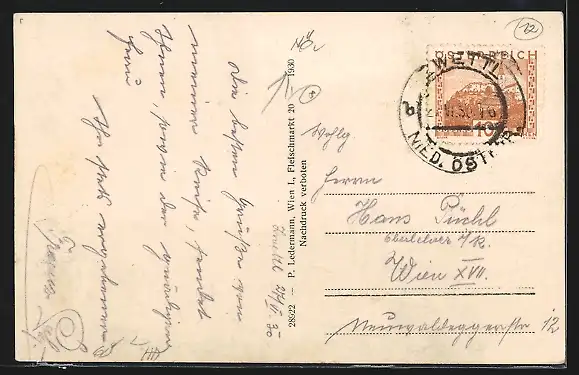 Die besten Grüße von
meiner Reise, sendet
Ihnen, sowie der gnädigen
Frau
Ihr stets ergebener
NÖ
12
28522 — P. Ledermann, Wien I., Fleischmarkt 20 1930
Nachdruck verboten
Zwettl
ÖSTERREICH
10
ZWETTL
NIED. ÖSTERR.
Wohlg.
Herrn
Hans Pichl
Wien XVII.
Neuwaldeggerstr 12